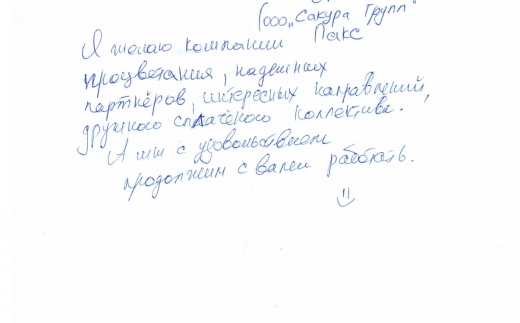 (ООО „Сакура Групп"
Я желаю компании Пакс
процветания, надежных
партнёров, интересных направлений,
дружного сплачёного коллектива.
А мы с удовольствием
продолжим с вами работать.